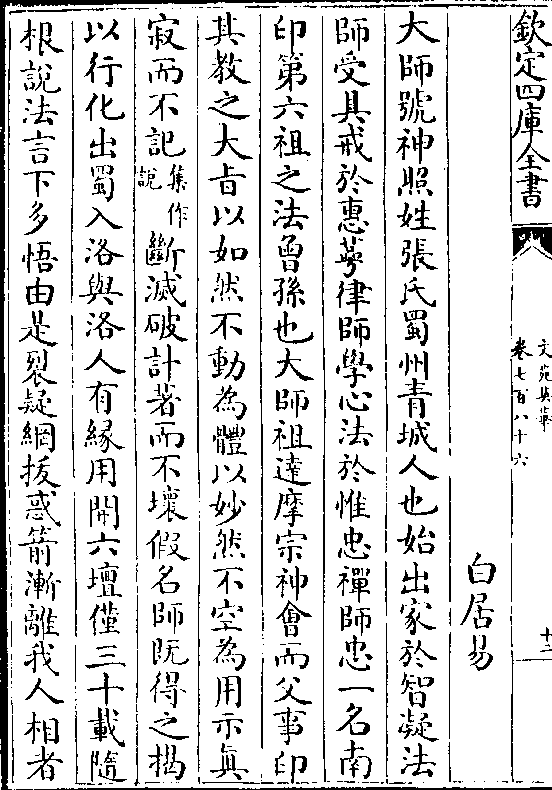 欽定四庫全書
文苑英華
卷七百八十六
十二
白居易
大師號神照姓張氏蜀州青城人也始出家於智凝法
師受具戒於惠萼律師學心法於惟忠禪師忠一名南
印第六祖之法曾孫也大師祖達摩宗神會而父事印
其教之大旨以如然不動為體以妙然不空為用示眞
寂而不記集作說斷滅破計著而不壞假名師既得之揭
以行化出蜀入洛與洛人有緣用開六壇僅三十載隨
根說法言下多悟由是裂疑網拔惑箭漸離我人相者